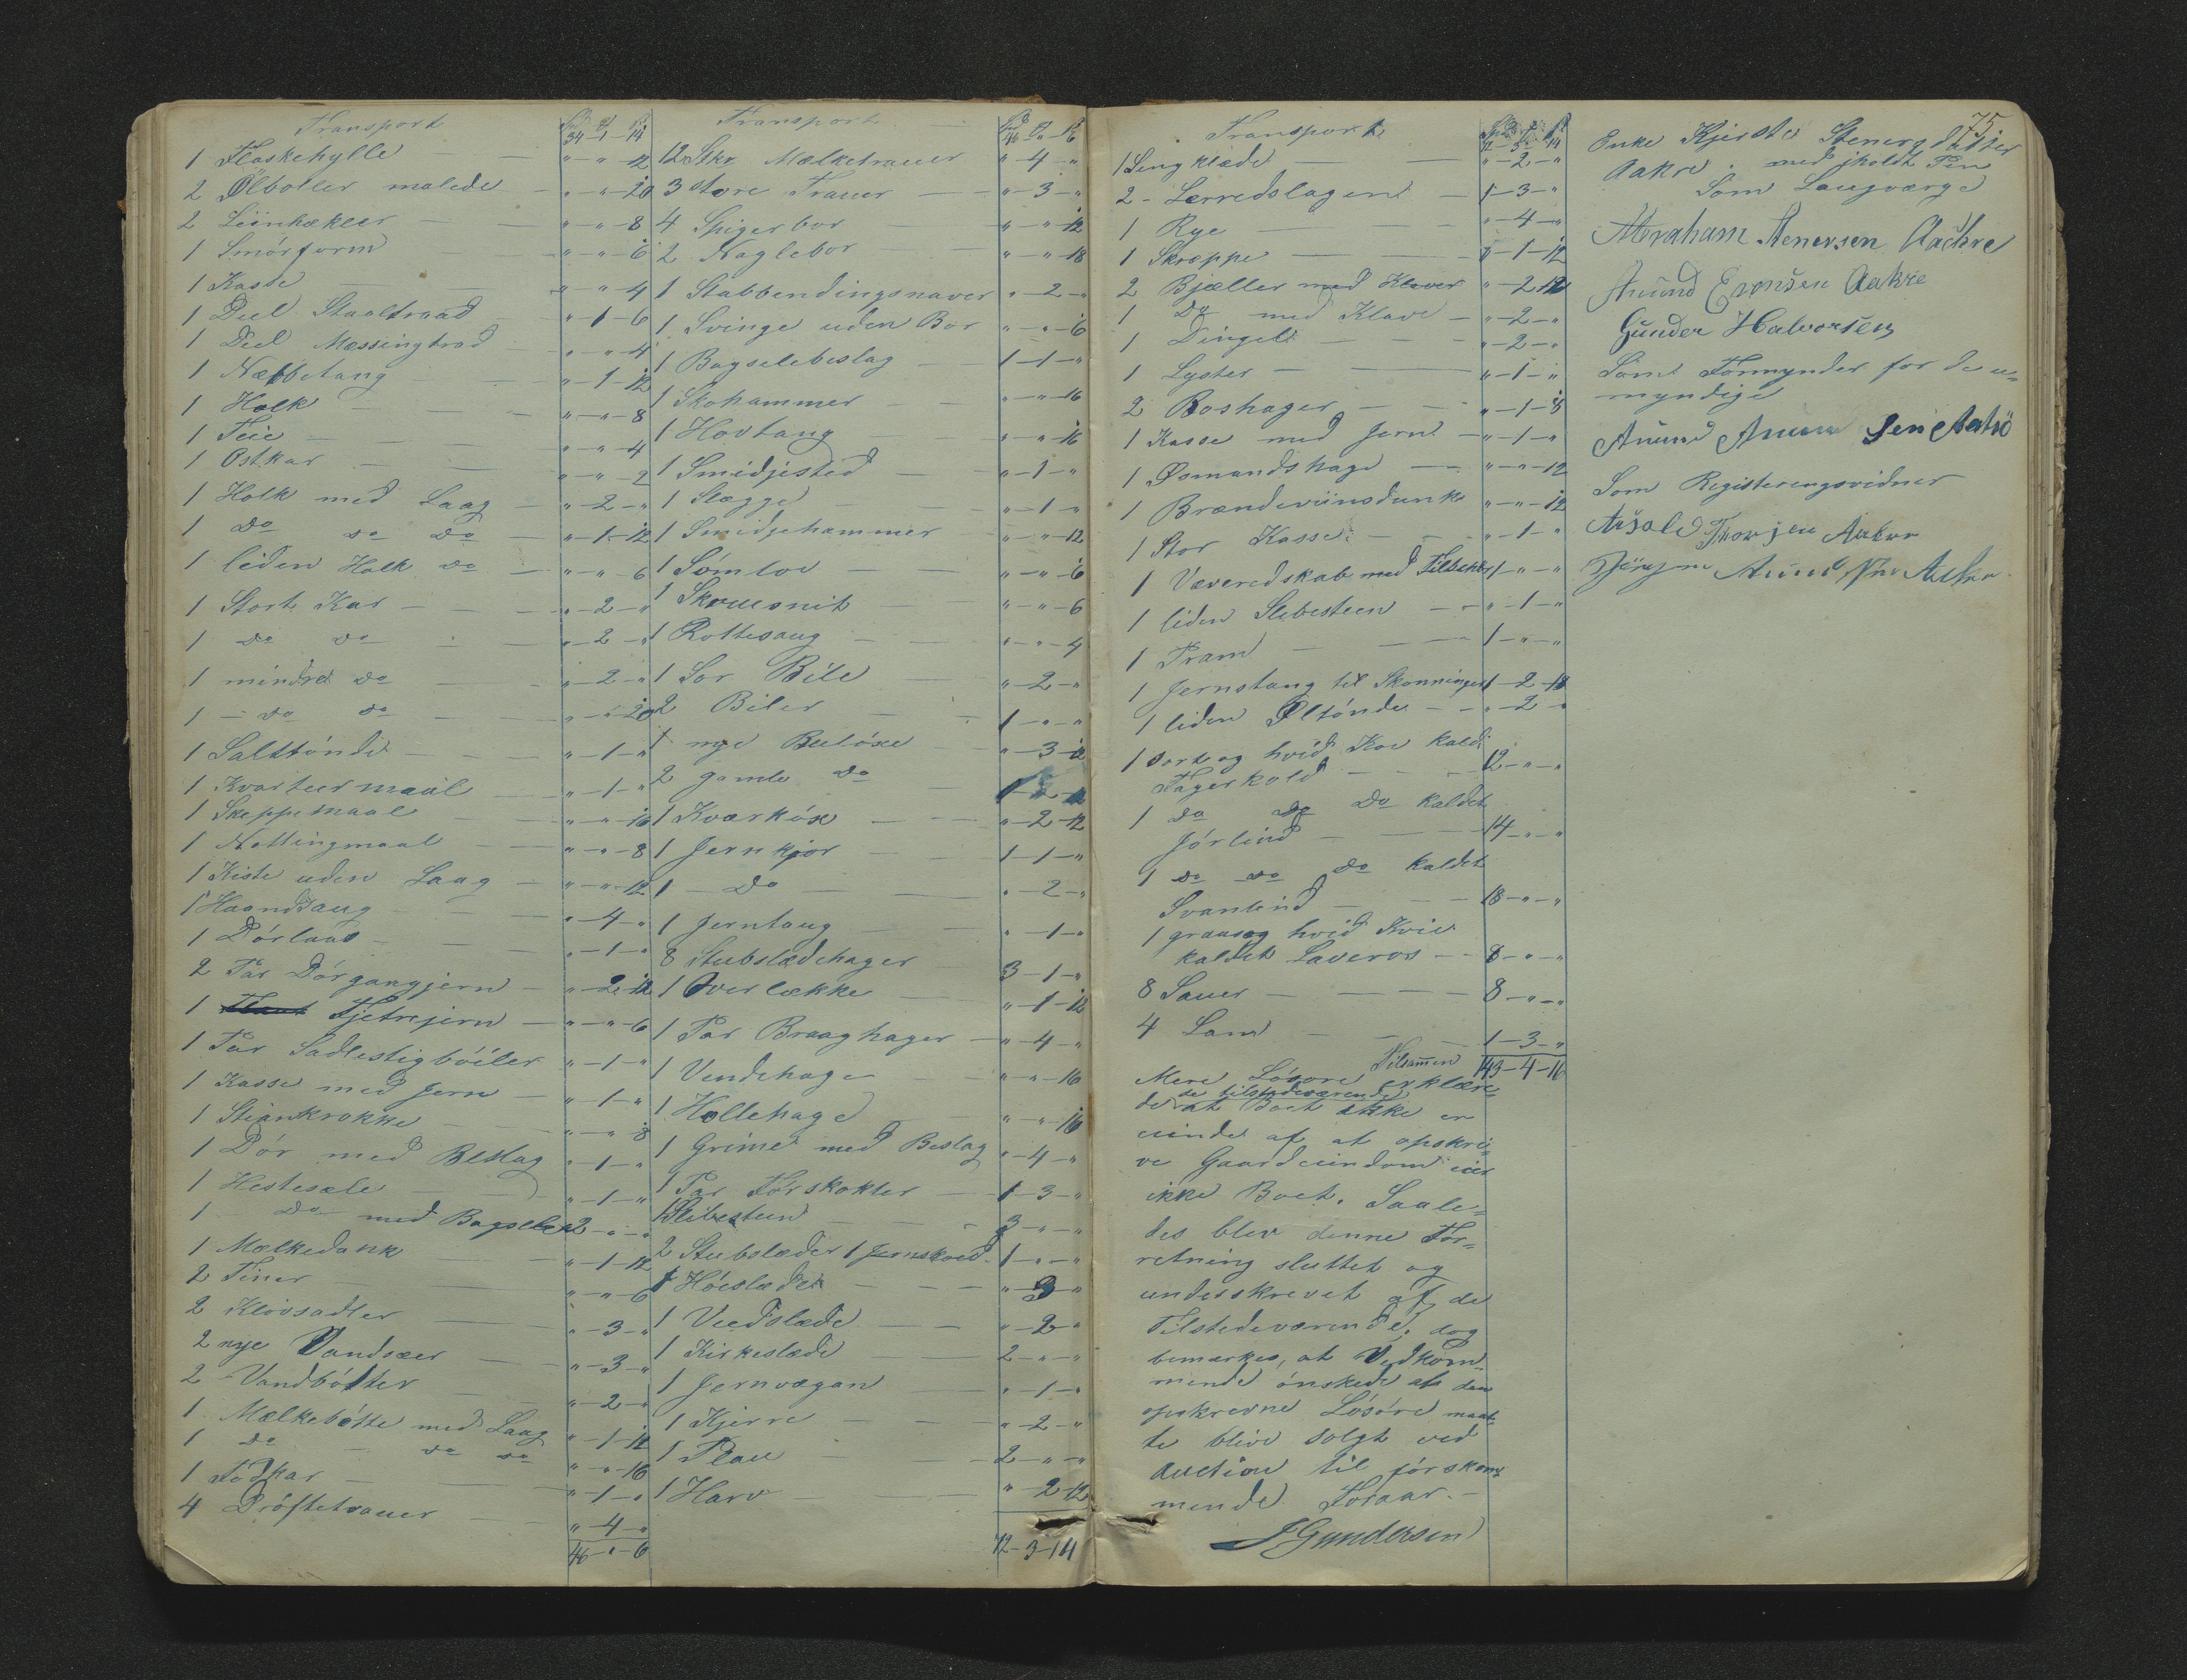 Transport 34-1-14
1 Flaskehylle " - " - 12
2 Ølboller malede " - " - 20
2 Liinhekler " - " - 8
1 Smörform " - " - 6
1 Kasse " - " - 4
1 Deel Staaltraad " - 1 - 6
1 Deel Messingtrad " - " - 4
1 Næbbetang " - 1 - 12
1 Holk " - " - 8
1 Teie " - " - 4
1 Ostkar " - " - 2
1 Holk med Laag " - 2 - "
1 Do Do Do " - 1 - 12
1 liden Holk Do " - " - 6
1 Stort Kar " - 2 - "
1 Do Do " - 2 - "
1 mindre Do " - 2 - "
1 - Do Do " - " - 20
1 Salttönde " - 1 - "
1 Kvarteermaal " - 1 - "
1 Skeppemaal " - " - 16
1 Nottingmaal " - " - 8
1 Kiste uden Laag " - " - 12
1 Haandsaug " - 4 - "
1 Dörlaas " - 1 - "
2 Par Dörgangjern " - 2 - 12
1 Fjetrejern " - " - 6
1 Par Sadlestigböiler " - 1 - "
1 Kasse med Jern " - 1 - "
1 Steankrokke " - " - 8
1 Dör med Beslag " - 1 - "
1 Hestesele " - 1 - "
1 Do med Bagsele 2 - " - "
1 Mælkedunk " - 1 - 12
2 Tiner " - " - 6
2 Klövsadler " - 3 - "
2 nye Vandsæer " - 3 - "
2 Vandbötter " - 2 - "
1 Mælkebötte med Laag " - 1 - 12
1 Do Do Do " - " - 16
1 Födkar " - 1 - "
4 Dröftetrauer " - 4 - "
46 - " - 6
Transport 46 - " - 6
12 Stkr Mælketrauer " - 4 - "
3 store Trauer " - 3 - "
4 Spigerbor " - " - 12
2 Naglebor " - " - 18
1 Stabbendingsnaver " - 2 - "
1 Svinge uden Bor " - " - 6
1 Bagselebeslag 1 - 1 - "
1 Skohammer " - " - 16
1 Hovtang " - " - 16
1 Smidjested " - 1 - "
1 Slægge " - 1 - "
1 Smidjehammer " - " - 12
1 Sömlov " - " - 6
1 Skruesnit " - " - 6
1 Rottesaug " - " - 4
1 Sor Bile " - 2 - "
2 Biler 1 - " - "
1 nye Bulöxe " - 3 - 12
2 gamle Do
1 Kværköx " - 2 - 12
1 Jernkjor 1 - 1 - "
1 - Do " - 2 - "
1 Jerntaug " - 1 - "
8 Stubslædehager 3 - 1 - "
1 Overlække " - 1 - 12
1 Par Braaghager " - 4 - "
1 Vendehage " - " - 16
1 Hollehage " - " - 16
1 Grime med Beslag " - 4 - "
1 Par Förskokler 1 - 3 - "
1 Slibesteen 3 - " - "
2 Stubslæder 1 Jernskoed 1 - " - "
1 Höislæde " - 3 - "
1 Vedslæde " - 2 "
1 Kirkeslæde 2 - " - "
1 Jernvægan " - 1 - "
1 Kjerre " - 2 - "
1 Plau 2 - " - "
1 Harv " - 2 - 12
72 - 3 - 14
Transport 72 - 3 - 14
1 Sengklæde " - 2 - "
2 - Lærredslagen 1 - 3 - "
1 Rye " - 4 - "
1 Skræppe " - 1 - 12
2 Bjæller med Klaver " - 2 - 12
1 Do med Klave " - 2 - "
1 Dingel " - 2 - "
1 Lyster " - 1 - "
2 Boshager " - 1 - 8
1 Kasse med Jern " - 1 - "
1 Øsmandshage " - " - 12
1 Brændeviinsdunk " - " - 12
1 Stor Kasse " - 1 - "
1 Væveredskab med Tilbehör 1 - " - "
1 liden Slibesteen " - 1 - "
1 Pram 1 - " - "
1 Jernstang til Skonninger 1 - 2 - 18
1 liden Øltönde " - 2 - "
1 sort og hvid Koe kaldt
Fagerkold 12 - " - "
1 Do Do Do kaldet
Jörlind 14 - " - "
1 Do Do Do kaldet
Svanlind 18 - " - "
1 graaog hvid Kvie
kaldet Laveros 8 - " - "
8 Sauer 8 - " - "
4 Lam 1 - 3 - "
Tilsamen 149 - 4 - 16
Mere Lösöre erklære-
de tilstedeværende
de at Boet ikke er
eiende af at opskri-
ve Gaardeiendom eier
ikke Boet. Saale-
des blev denne For-
retning sluttet og
underskrevet af de
Tilstedeværende, dog
bemærkes, at Vedkom-
mende önskede at den
opskrevne Lösöre maat-
te blive solgt ved
Auction til förskom-
mende Foraar. -
J Gundersen
75
Enke Kjersti Stenersdatter
Aakre med iholdt Pen
Som Laugværge
Abraham Stenersen Aackre
Anund Evensen Aakre
Gunder Halvorsen
Som Formynder for de u-
myndige
Anund
Som Registeringsvidner
Aasold